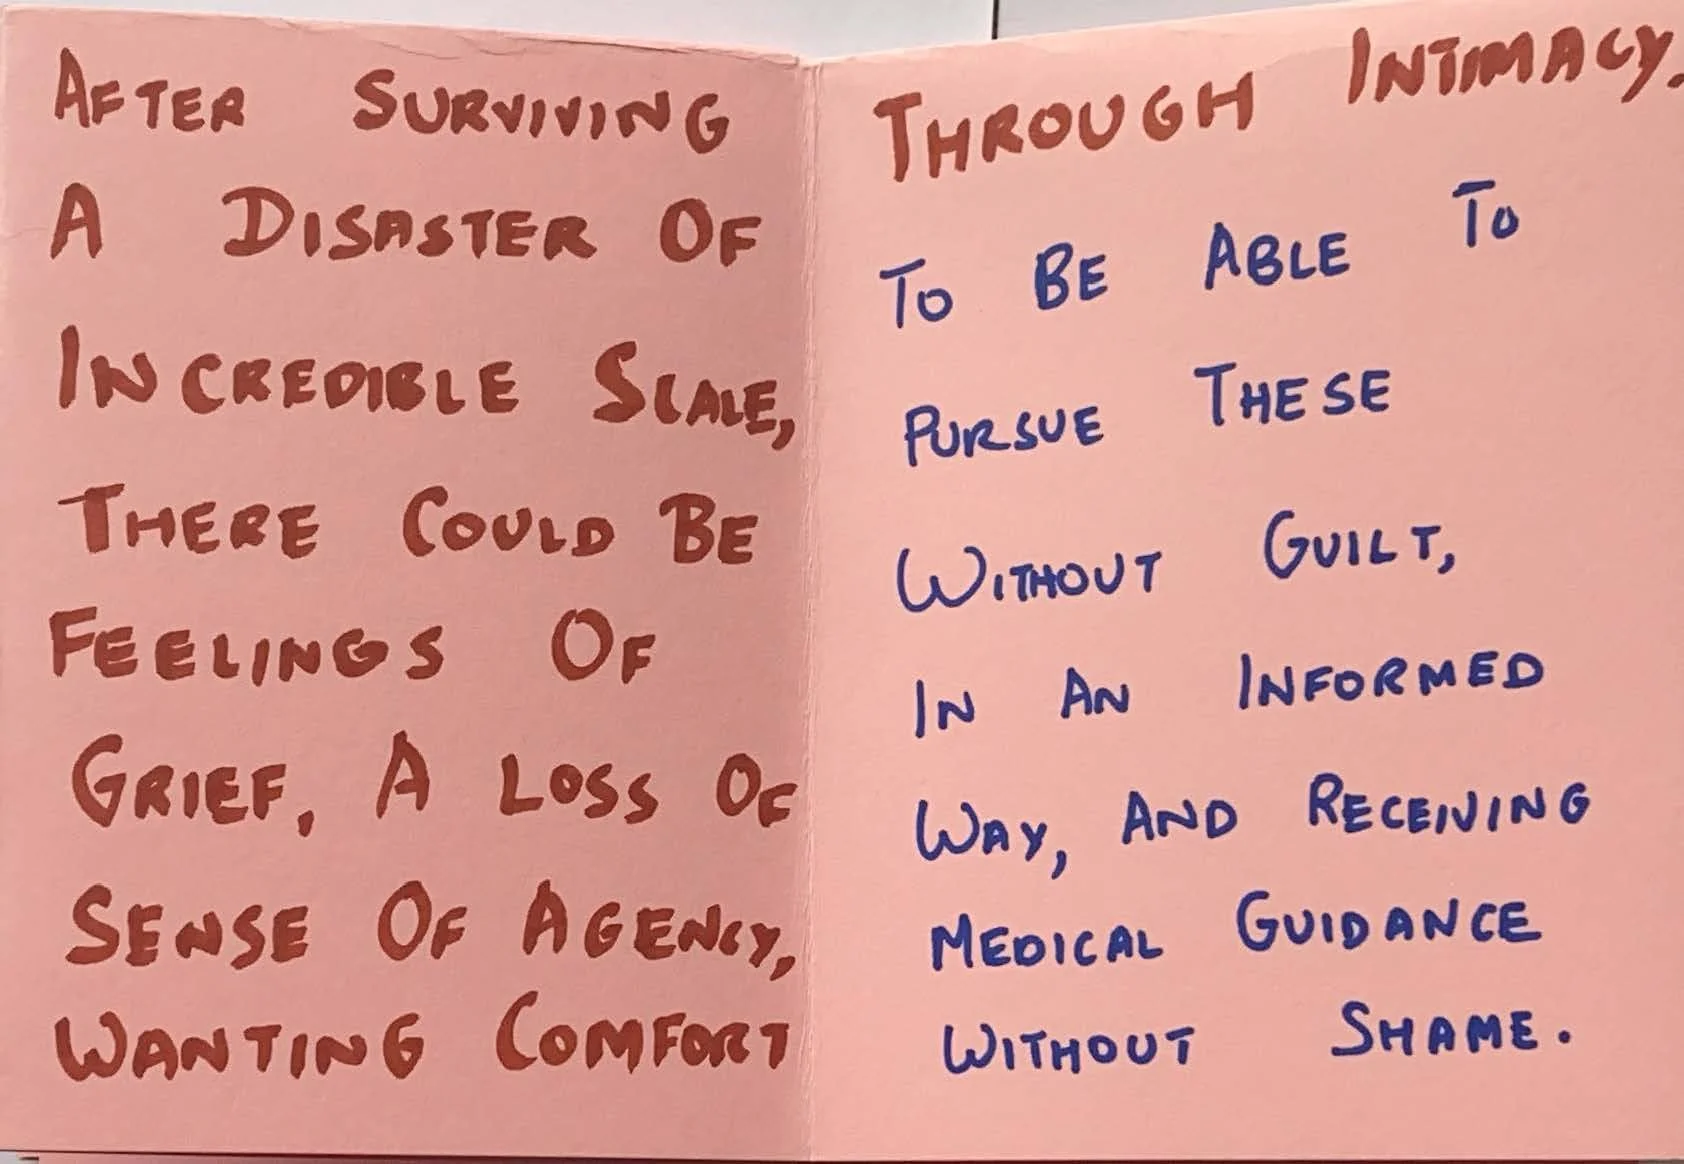 AFTER SURVIVING
A DISASTER OF
INCREDIBLE SCALE,
THERE COULD BE
FEELINGS OF
GRIEF, A LOSS OF
SENSE OF AGENCY,
WANTING COMFORT
THROUGH INTIMACY.
TO BE ABLE TO
PURSUE THESE
WITHOUT GUILT,
IN AN INFORMED
WAY, AND RECEIVING
MEDICAL GUIDANCE
WITHOUT SHAME.